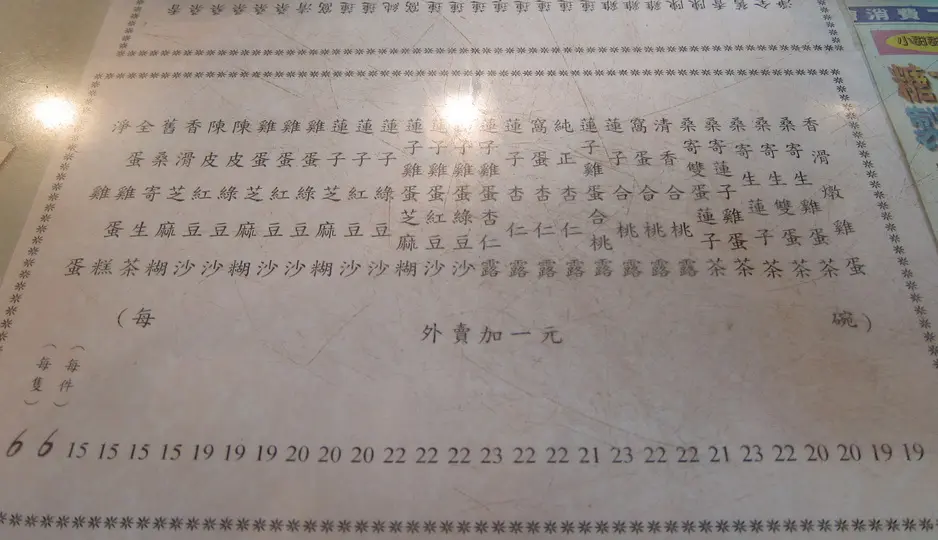 香滑燉雞蛋 19
桑寄生雞蛋茶 19
桑寄生雙蛋茶 20
桑寄生蓮子茶 20
桑寄蓮子雞蛋茶 22
桑寄雙蛋蓮子茶 23
清香合桃露 21
窩蛋合桃露 22
蓮子合桃露 22
蓮子雞蛋合桃露 23
純正杏仁露 21
窩蛋杏仁露 22
蓮子杏仁露 22
蓮子雞蛋杏仁露 23
蓮子雞蛋綠豆沙 22
蓮子雞蛋紅豆沙 22
蓮子雞蛋芝麻糊 22
蓮子綠豆沙 20
蓮子紅豆沙 20
蓮子芝麻糊 20
雞蛋綠豆沙 19
雞蛋紅豆沙 19
雞蛋芝麻糊 19
陳皮綠豆沙 15
陳皮紅豆沙 15
香滑芝麻糊 15
舊桑寄生茶 15
全蛋雞蛋糕 6
淨雞蛋 6
(每 碗)
外賣加一元
(每件)
(每隻)
消費